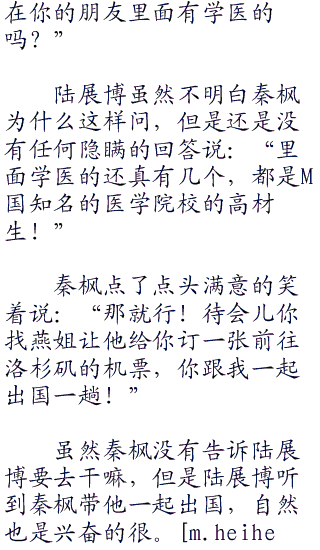 在你的朋友里面有学医的
吗？”
陆展博虽然不明白秦枫
为什么这样问，但是还是没
有任何隐瞒的回答说：“里
面学医的还真有几个，都是M
国知名的医学院校的高材
生！”
秦枫点了点头满意的笑
着说：“那就行！待会儿你
找燕姐让他给你订一张前往
洛杉矶的机票，你跟我一起
出国一趟！”
虽然秦枫没有告诉陆展
博要去干嘛，但是陆展博听
到秦枫带他一起出国，自然
也是兴奋的很。[m.heihe